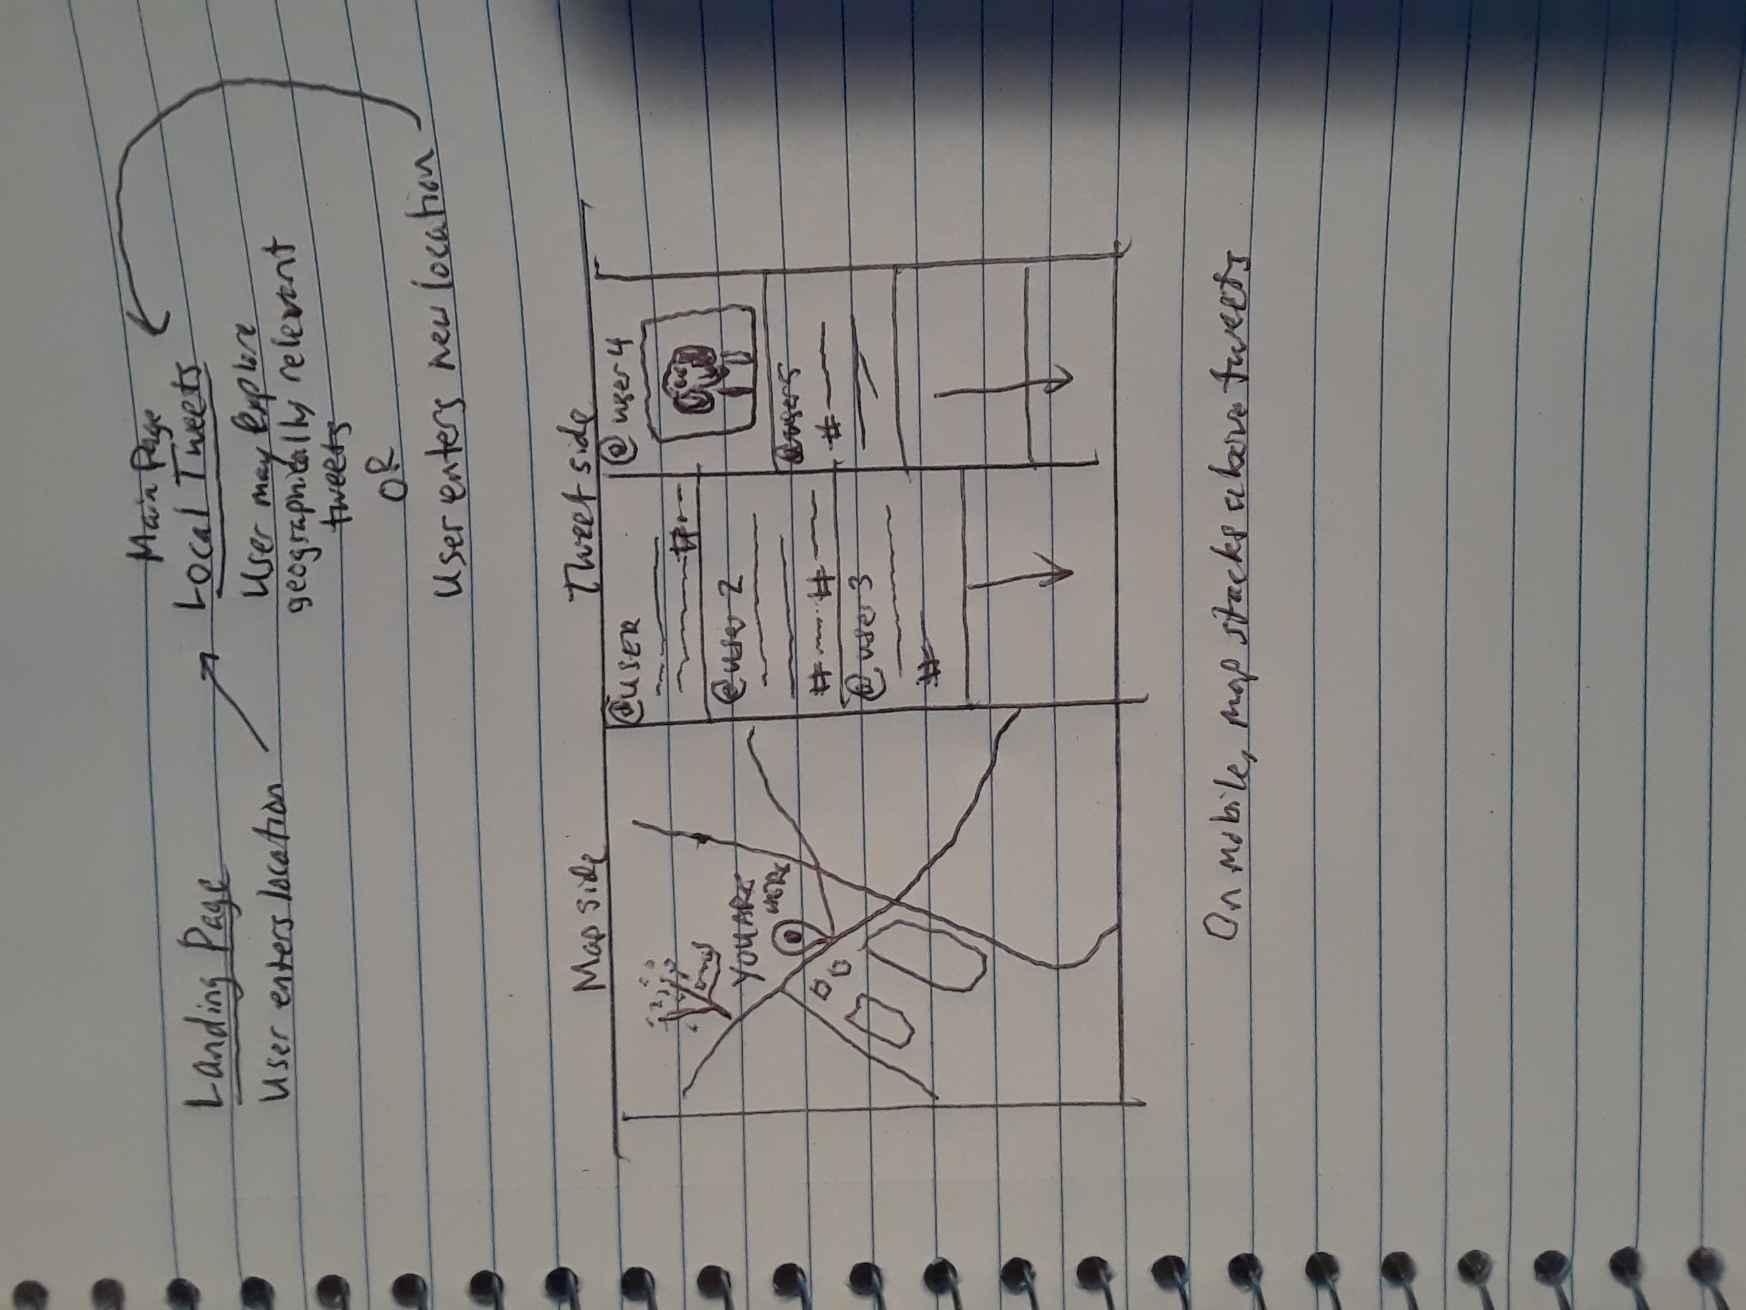 Landing Page
User enters location
Main Page
Local Tweets
User may Explore
geographically relevent
tweets
OR
User enters new location
Map side
Tweet side
YOU ARE
HERE
@USER
#
@user 2
# #
@user 3
#
@user 4
@user 5
#
On mobile, map stacks above tweets